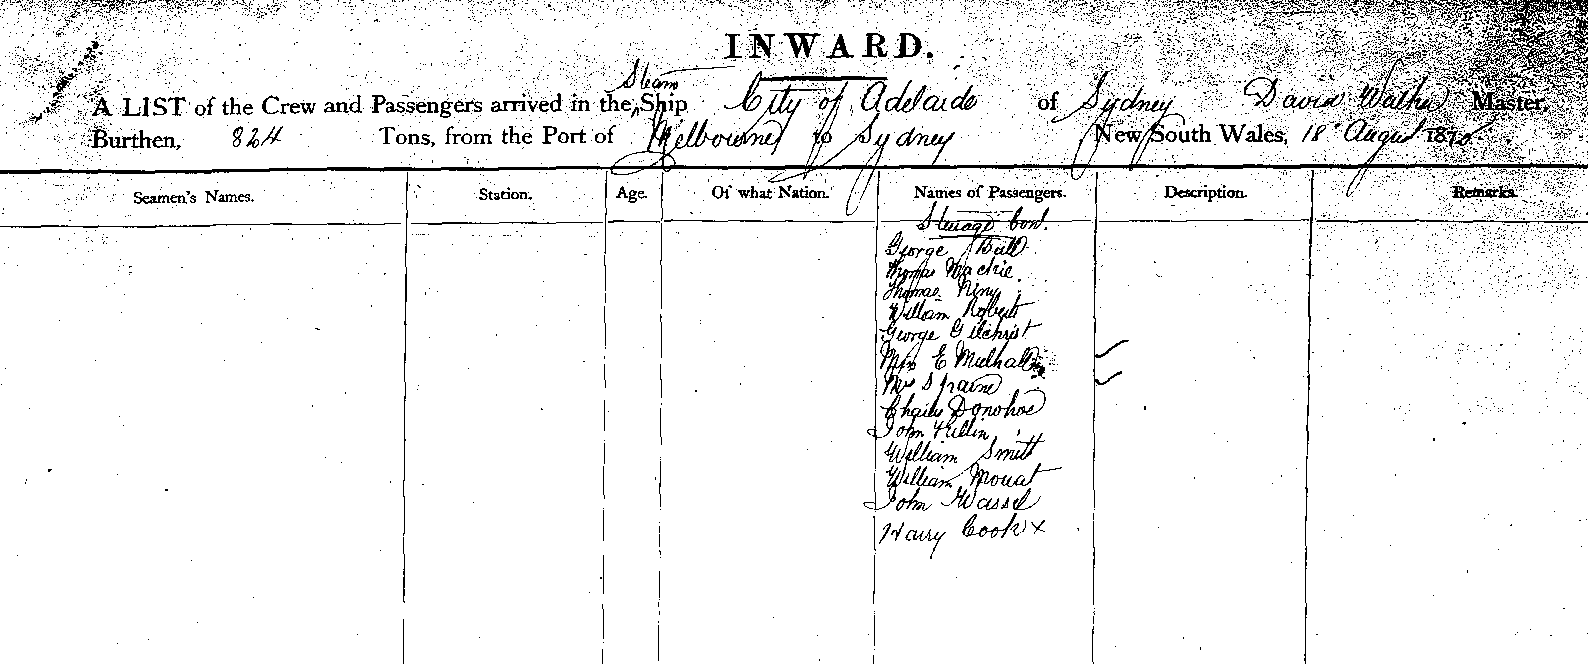 INWARD.
Steam
A LIST of the Crew and Passengers arrived in the Ship City of Adelaide of Sydney David Walker Master,
Burthen, 824 Tons, from the Port of Melbourne to Sydney New South Wales, 18 August 187
Seamen's Names. Station. Age. Of what Nation. Names of Passengers. Description. Remarks.
Steerage Cont.
George Bull
Thomas Mackie
Thomas
William Robert
George Gilchrist
E Mulhall
Mrs
Charles Donohoe
John
William Smith
William Mouat
John Wassel
Harry Cook x